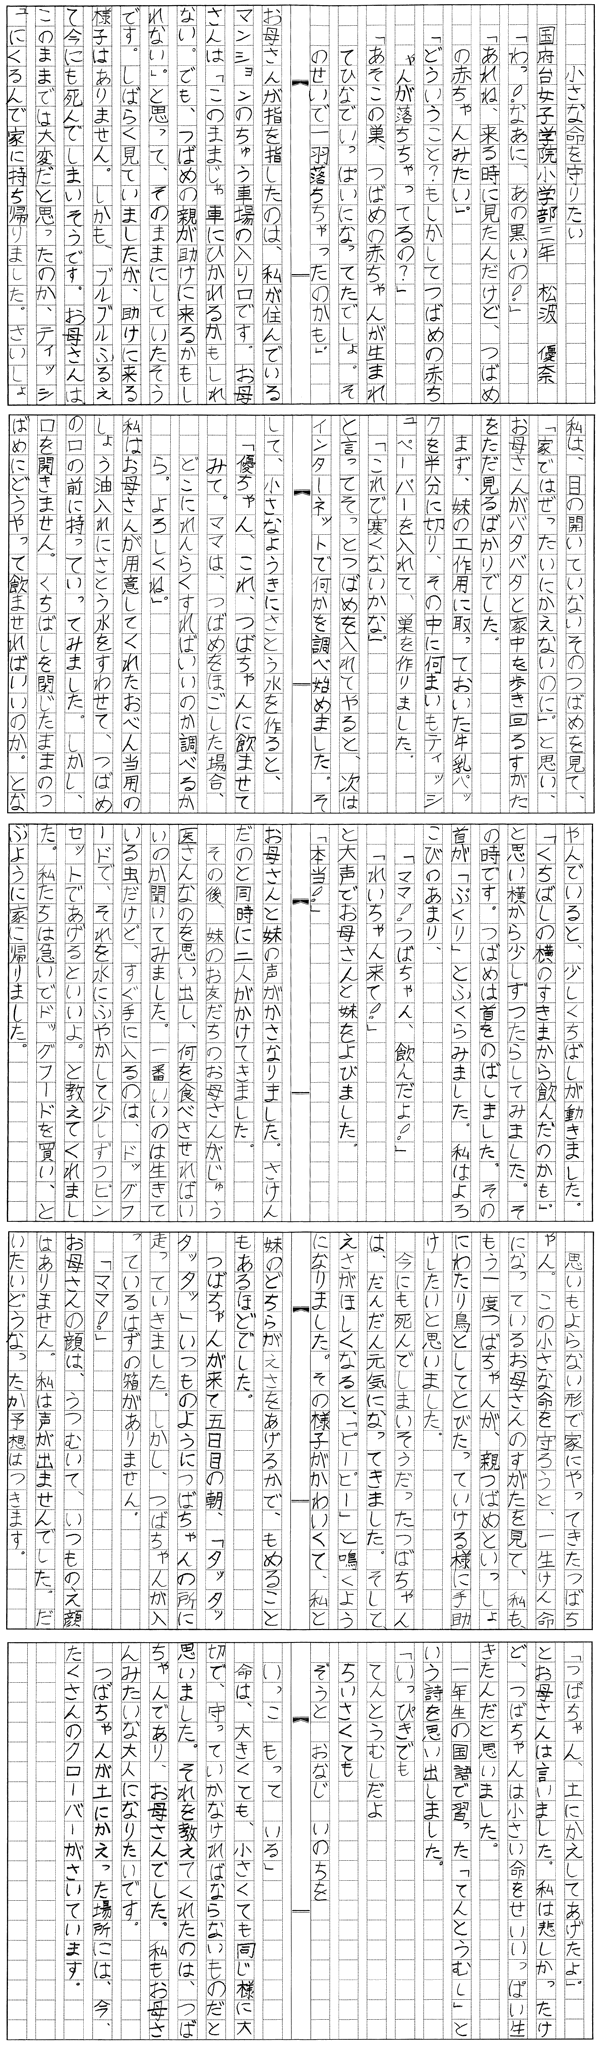 小さな命を守りたい
国府台女子学院小学部三年　松波　優奈
「わっ！なあに、あの黒いの！」
「あれね、来る時に見たんだけど、つばめ
の赤ちゃんみたい」
「どういうこと？もしかしてつばめの赤ち
ゃんが落ちちゃってるの？」
「あそこの巣、つばめの赤ちゃんが生まれ
てひなでいっぱいになってたでしょ。そ
のせいで一羽落ちちゃったのかも」
お母さんが指を指したのは、私が住んでいる
マンションのちゅう車場の入り口です。お母
さんは「このままじゃ車にひかれるかもしれ
ない。でも、つばめの親が助けに来るかもし
れない。」と思って、そのままにしていたそう
です。しばらく見ていましたが、助けに来る
様子はありません。しかも、ブルブルふるえ
て今にも死んでしまいそうです。お母さんは
このままでは大変だと思ったのか、ティッシ
ュにくるんで家に持ち帰りました。さいしょ
私は、目の開いていないそのつばめを見て、
「家ではぜったいにかえないのに」と思い、
お母さんがバタバタと家中を歩き回るすがた
をただ見るばかりでした。
まず、妹の工作用に取っておいた牛乳パッ
クを半分に切り、その中に何まいもティッシ
ュペーパーを入れて、巣を作りました。
「これで寒くないかな」
と言ってそっとつばめを入れてやると、次は
インターネットで何かを調べ始めました。そ
して、小さなようきにさとう水を作ると、
「優ちゃん、これ、つばちゃんに飲ませて
みて。ママは、つばめをほごした場合、
どこにれんらくすればいいのか調べるか
ら。よろしくね」
私はお母さんが用意してくれたおべん当用の
しょう油入れにさとう水をすわせて、つばめ
の口の前に持っていってみました。しかし、
口を開きません。くちばしを閉じたままのつ
ばめにどうやって飲ませればいいのか。とな
やんでいると、少しくちばしが動きました。
「くちばしの横のすきまから飲んだのかも」
と思い横から少しずつたらしてみました。そ
の時です。つばめは首をのばしました。その
首が「ぷくり」とふくらみました。私はよろ
こびのあまり、
「ママ！つばちゃん、飲んだよ！」
「れいちゃん来て！」
と大声でお母さんと妹をよびました。
「本当！」
お母さんと妹の声がかさなりました。さけん
だのと同時に二人がかけてきました。
その後、妹のお友だちのお母さんがじゅう
医さんなのを思い出し、何を食べさせればい
いのか聞いてみました。一番いいのは生きて
いる虫だけど、すぐ手に入るのは、ドッグフ
ードで、それを水にふやかして少しずつピン
セットであげるといいよ。と教えてくれまし
た。私たちは急いでドッグフードを買い、と
ぶように家に帰りました。
思いもよらない形で家にやってきたつばち
ゃん。この小さな命を守ろうと、一生けん命
になっているお母さんのすがたを見て、私も、
もう一度つばちゃんが、親つばめといっしょ
にわたり鳥としてとびたっていける様に手助
けしたいと思いました。
今にも死んでしまいそうだったつばちゃん
は、だんだん元気になってきました。そして、
えさがほしくなると、「ピーピー」と鳴くよう
になりました。その様子がかわいくて、私と
妹のどちらがえさをあげるかで、もめること
もあるほどでした。
つばちゃんが来て五日目の朝、「タッタッ
タッタッ」いつものようにつばちゃんの所に
走っていきました。しかし、つばちゃんが入
っているはずの箱がありません。
「ママ！」
お母さんの顔は、うつむいて、いつものえ顔
はありません。私は声が出ませんでした。だ
いたいどうなったか予想はつきます。
「つばちゃん、土にかえしてあげたよ」
とお母さんは言いました。私は悲しかったけ
ど、つばちゃんは小さい命をせいいっぱい生
きたんだと思いました。
一年生の国語で習った「てんとうむし」と
いう詩を思い出しました。
「いっぴきでも
てんとうむしだよ
ちいさくても
ぞうと　おなじ　いのちを
いっこ　もって　いる」
命は、大きくても、小さくても同じ様に大
切で、守っていかなければならないものだと
思いました。それを教えてくれたのは、つば
ちゃんであり、お母さんでした。私もお母さ
んみたいな大人になりたいです。
つばちゃんが土にかえった場所には、今、
たくさんのクローバーがさいています。